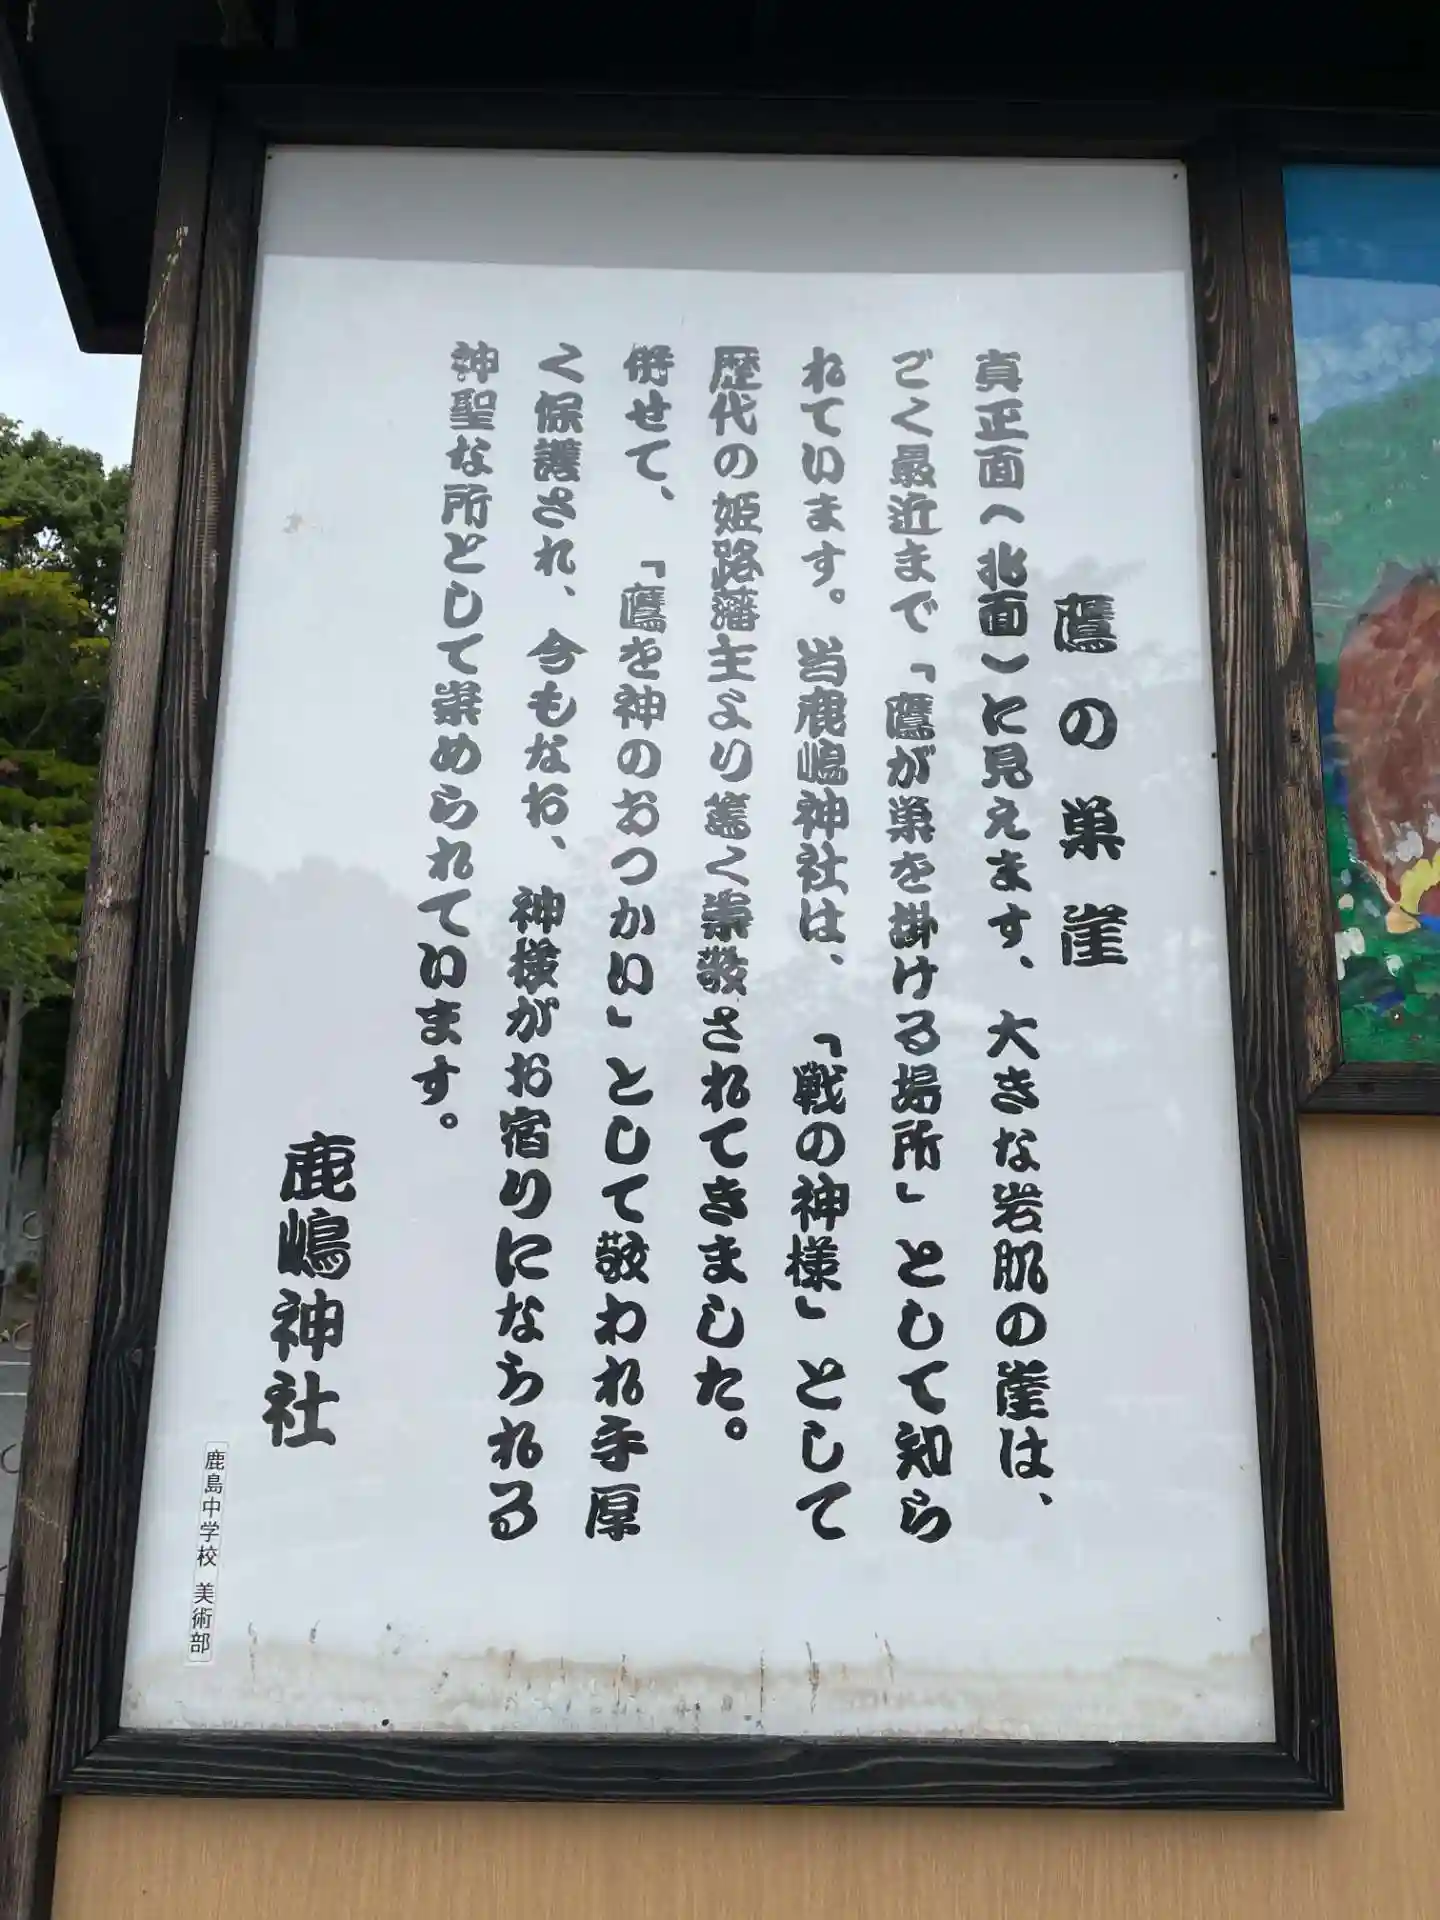 鷹の巣崖
真正面(北面)に見えます、大きな岩肌の崖は、
ごく最近まで「鷹が巣を掛ける場所」として知ら
れています。当鹿嶋神社は、「戦の神様」として
歴代の姫路藩主より篤く崇敬されてきました。
併せて、「鷹を神のおつかい」として敬われ手厚
く保護され、今もなお、神様がお宿りになられる
神聖な所として崇められています。
鹿嶋神社
鹿島中学校 美術部